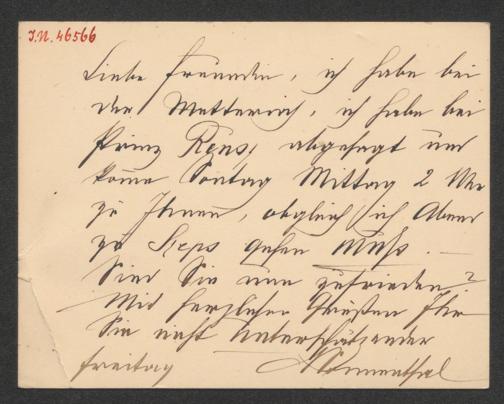 J.N. 46566
Liebe Freundin, ich habe bei
der Metternich, ich habe bei
Prinz Reuß abgesagt und
kome Sontag Mittag 2 Uhr
zu Ihnen, obgleich ich Abend
zu gehen muß. —
Sind Sie nun zufrieden?
Mit herzlichen Grüßen Ihr
Sie nicht unterschätzender
Freitag Sonnenthal